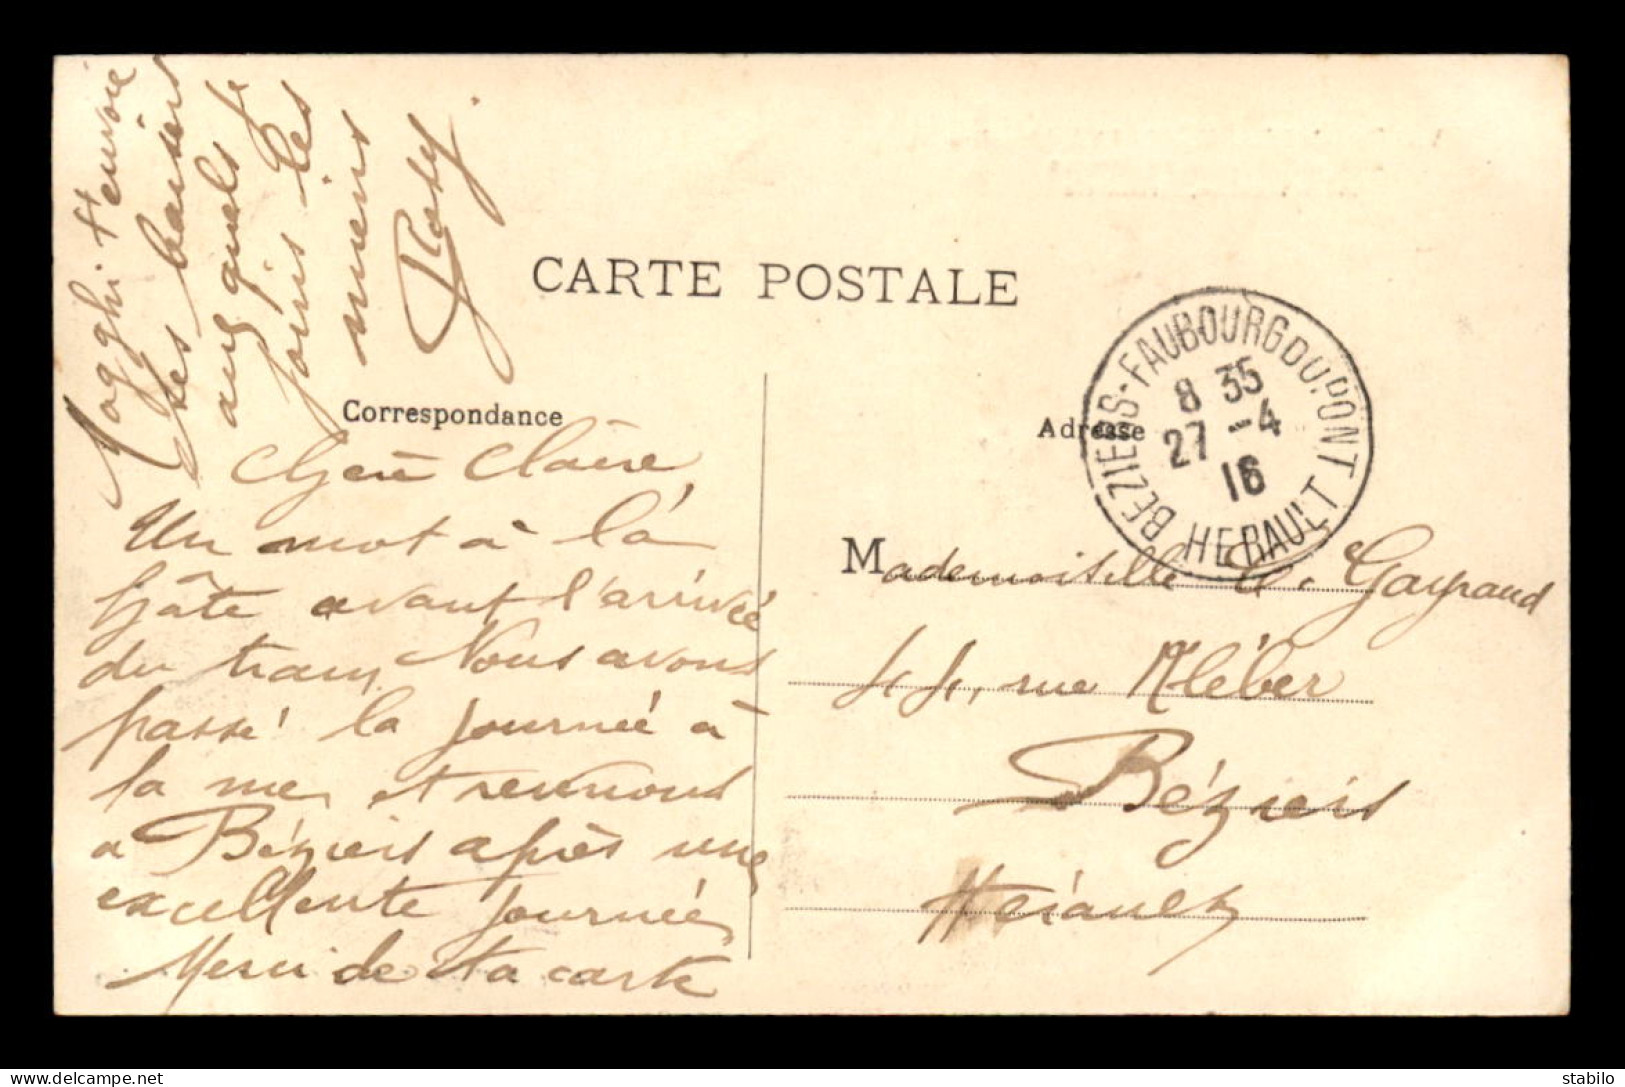 CARTE POSTALE
Correspondance
Adresse
BEZIERS-FAUBOURG DU PONT
HERAULT
8 35
27 -4
16
Chère Claire,
Un mot à la
hâte avant l'arrivée
du tram, Nous avons
passé la journée à
la mer et revenons
a Béziers après une
excellente journée
Merci de ta carte
t'envoie
ses baisers
auxquels je
joins les
miens
Mademoiselle C. Gayraud
44, rue Kléber
Béziers
Hérault
stabilo